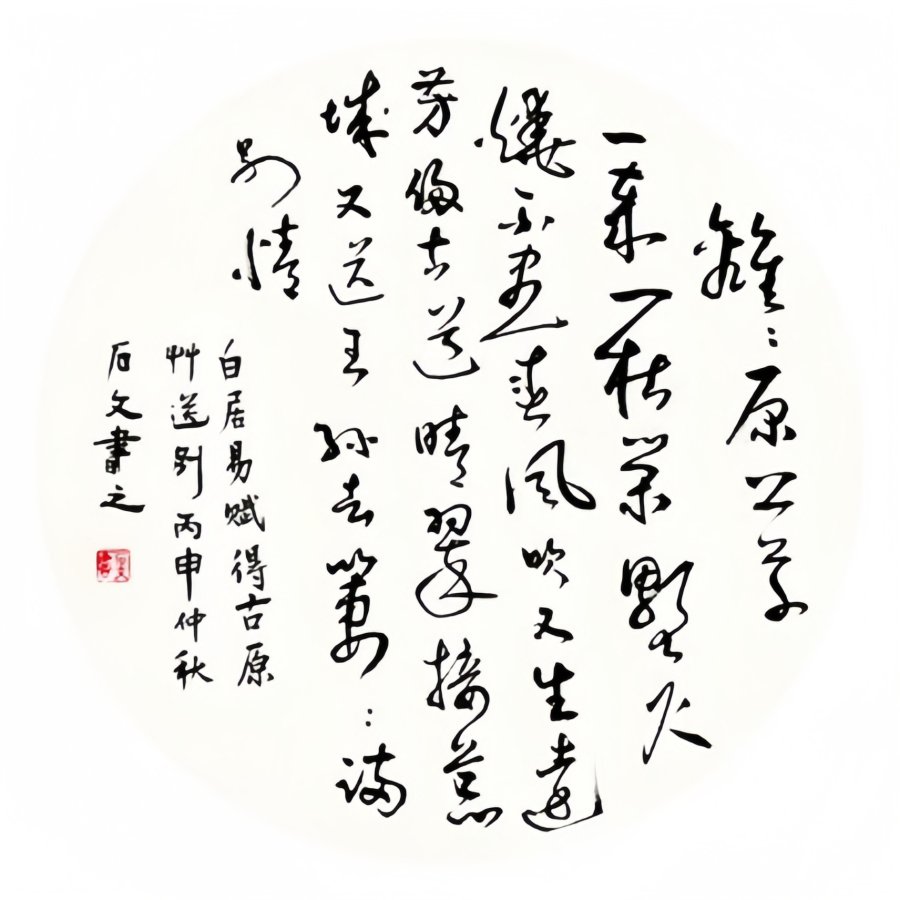 離〻原上草
一歲一枯榮野火
燒不盡春風吹又生遠
芳侵古道晴翠接荒
城又送王孫去萋〻滿
別情
白居易賦得古原
艸送別丙申仲秋
石文書之